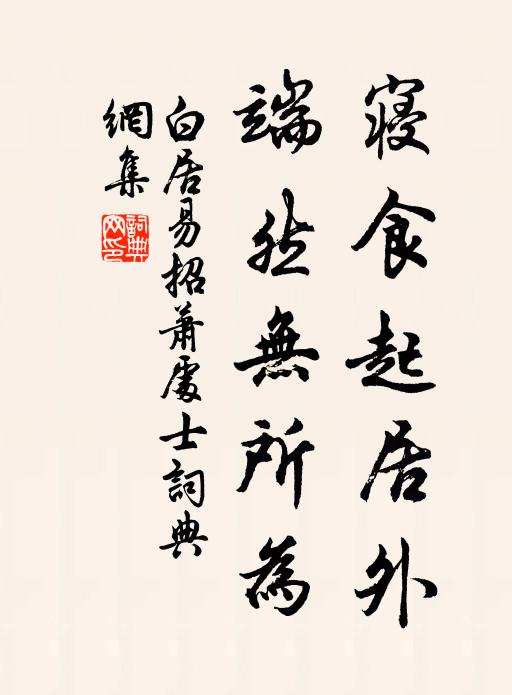 寢食起居外
端然無所為
白居易招蕭處士詞典
網集
詞典
网印